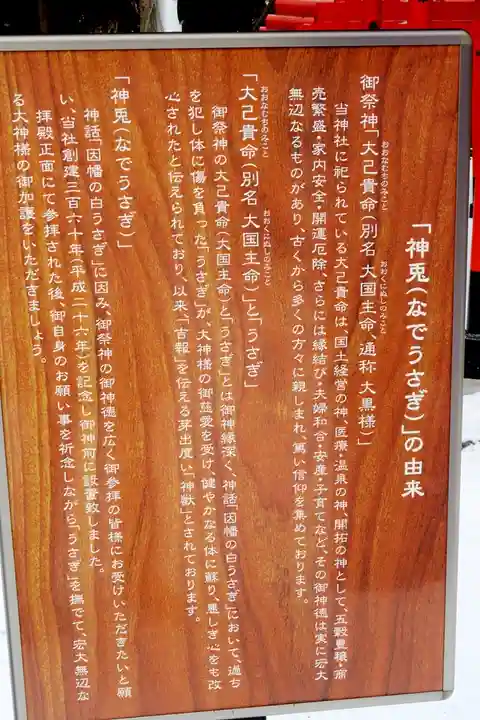 「神兎(なでうさぎ)」の由来
御祭神「大己貴命(別名 大国主命、通称 大黒様)」
おおなむちのみこと
おおくにぬしのみこと
当神社に祀られている大己貴命は、国土経営の神、医療・温泉の神、開拓の神として、五穀豊穣・商
売繁盛・家内安全・開運厄除、さらには縁結び・夫婦和合・安産・子育てなど、その御神徳は実に宏大
無辺なるものがあり、古くから多くの方々に親しまれ、篤い信仰を集めております。
「大己貴命(別名 大国主命)」と「うさぎ」
おおなむちのみこと
おおくにぬしのみこと
御祭神の大己貴命(大国主命)と「うさぎ」とは御神縁深く、神話「因幡の白うさぎ」において、過ち
を犯し体に傷を負った「うさぎ」が、大神様の御慈愛を受け、健やかなる体に蘇り、悪しき心をも改
心されたと伝えられており、以来、「吉報」を伝える芽出度い「神獣」とされております。
「神兎(なでうさぎ)」
神話「因幡の白うさぎ」に因み、御祭神の御神徳を広く御参拝の皆様にお受けいただきたいと願
い、当社創建三百六十年(平成二十六年)を記念し御神前に設置致しました。
拝殿正面にて参拝された後、御自身のお願い事を祈念しながら「うさぎ」を撫でて、宏大無辺な
る大神様の御加護をいただきましょう。